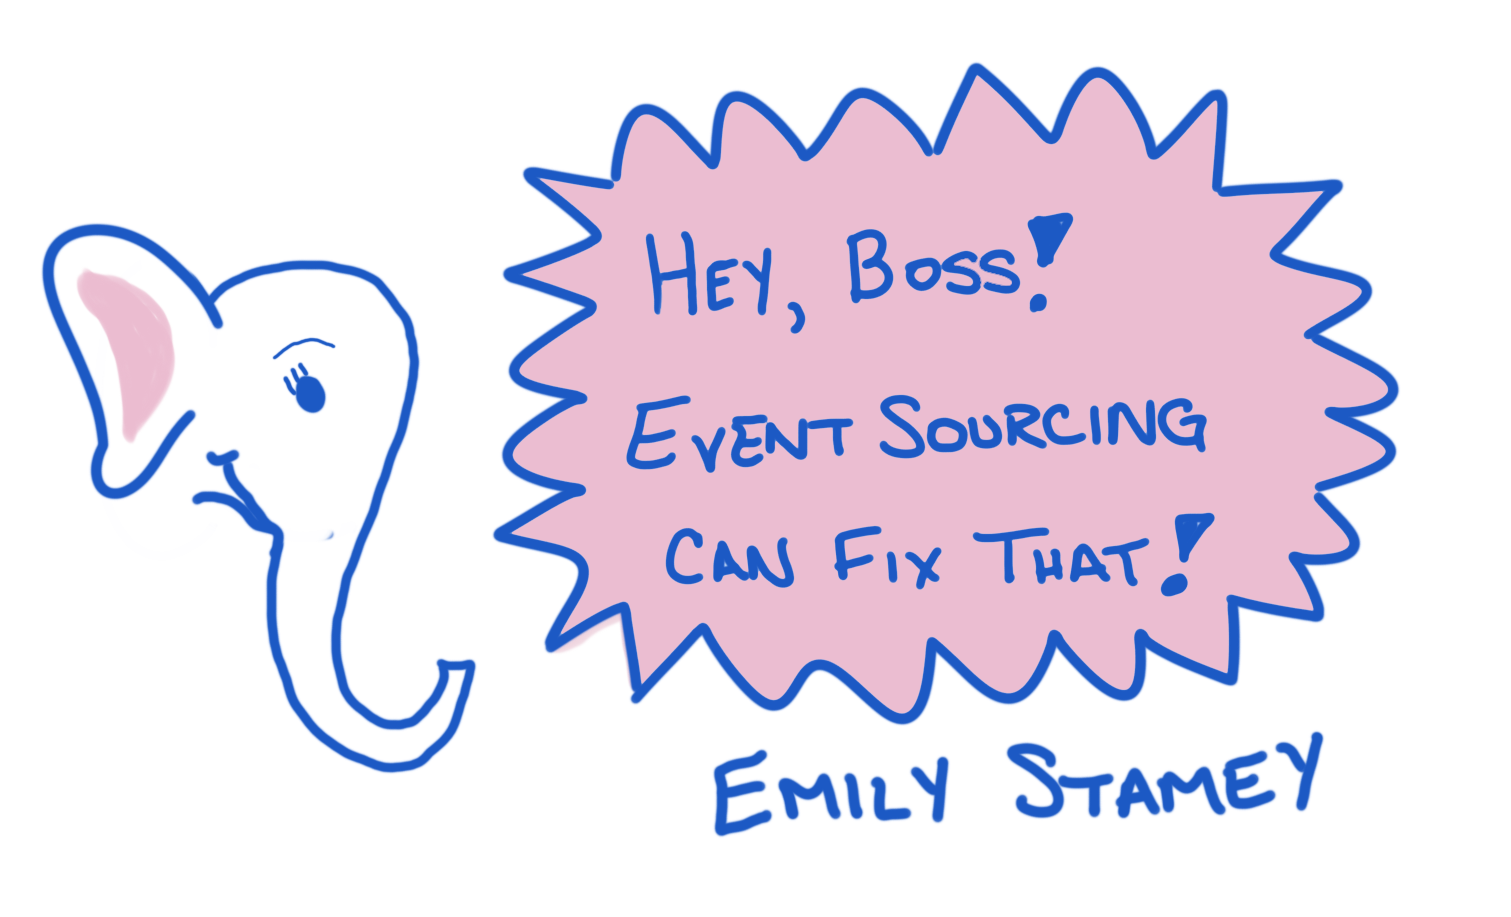 Hey, Boss!
Event Sourcing
Can Fix That!
Emily Stamey